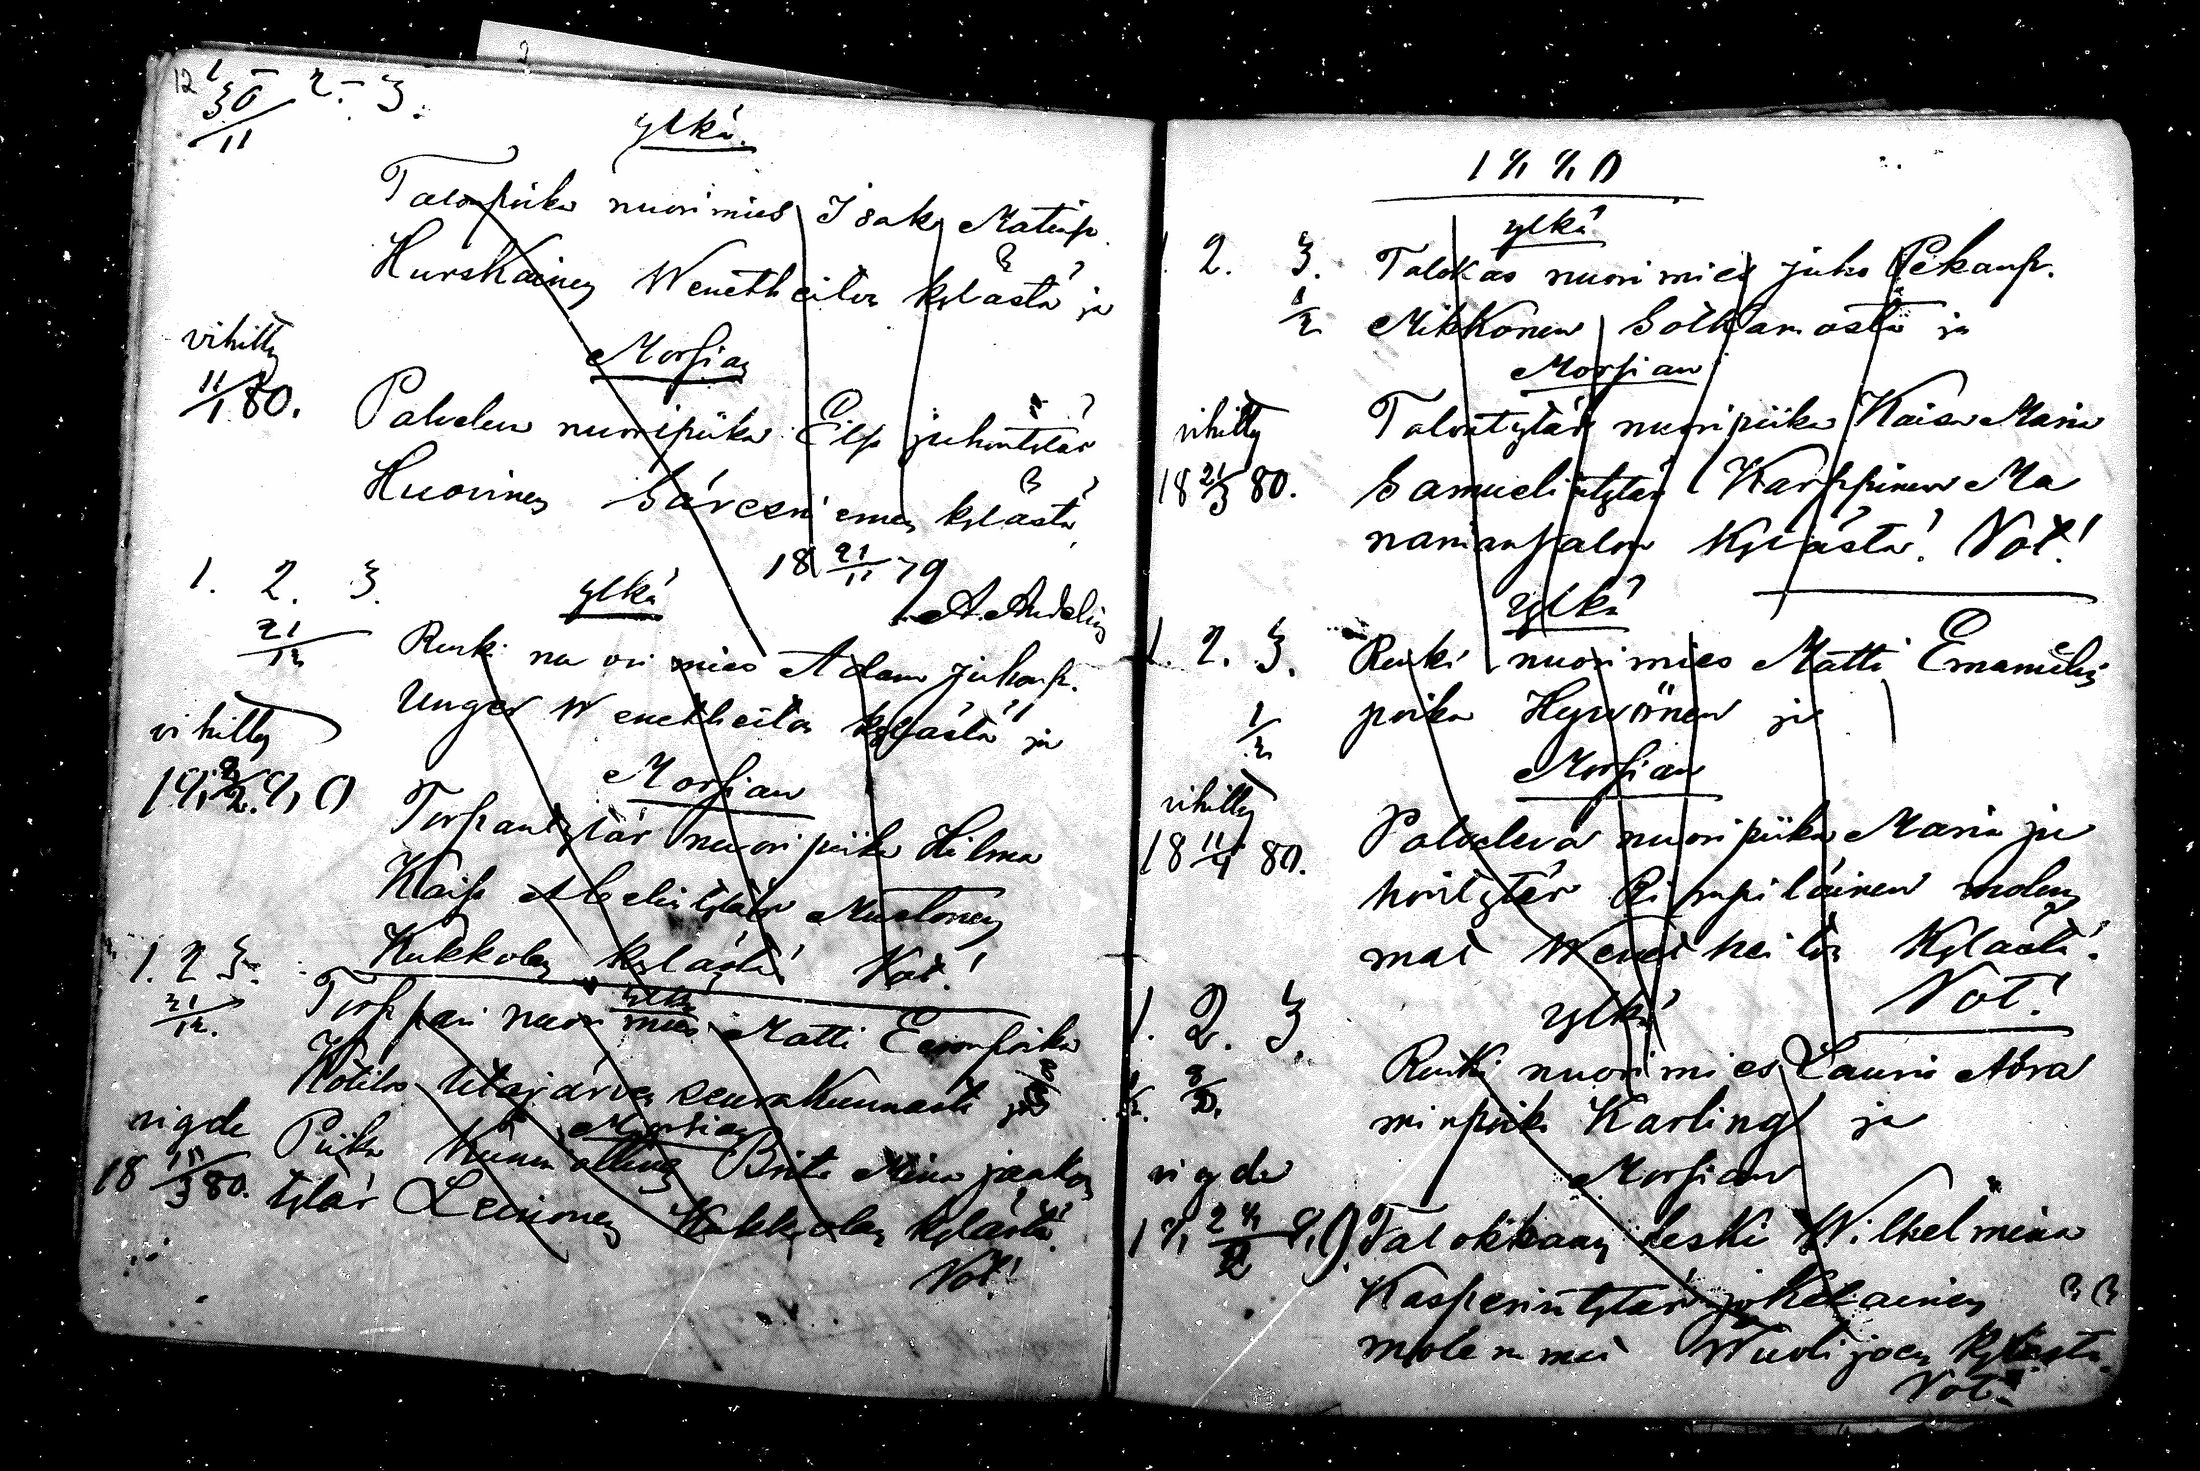 12 1 30/11 2. 3.
ylkä.
Talonpoika nuorimies Isak Matinp.
Hurskainen Wenetheiton kylästä ja
vihitty
Morsian
11/1 80.
Palvelia nuoripiika Elsa Juhontytär
Huovinen Säresniemen kylästä
18 21/11 79
A. Andelin
1. 2. 3.
21/12
ylkä
Renki nuorimies Adam Juhonp.
Unger Wenetheiton kylästä ja
vihitty
Morsian
18 8/2 80
Torpantytär nuoripiika Hilma
Kaisa Abelintytär Mustonen
Kukkolan kylästä Not!
1. 2. 3.
21/12.
ylkä
Torppari nuorimies Matti Eeronpoika
Kotila Utajärven seurakunnasta ja
Morsian
vigde
18 15/3 80.
Piika Brita Mina Jaakon
tytär Leinonen Kukkolan kylästä
Not!
1880
ylkä
1. 2. 3.
1/2
Talokas nuorimies Juho Pekanp.
Mikkonen Sotkamosta ja
Morsian
vihitty
18 21/3 80.
Talontytär nuoripiika Kaisa Maria
Samuelintytär Karppinen Ma
namansalon kylästä. Not!
ylkä
1. 2. 3.
1/2
Renki nuorimies Matti Emanuelin
poika Hyvönen ja
Morsian
vihitty
18 11/4 80.
Palveleva nuoripiika Maria Ju
hontytär Rimpiläinen molem
mat Wenetheiton kylästä.
Not!
ylkä
1. 2. 3.
1/2. 8/2.
Renki nuorimies Lauri Abra
minpoika Karling ja
Morsian
vigde
18 28/2 80.
Talokkaan leski Wilhelmina
Kasperintytär Keränen
molemmat Wuolijoen kylästä.
Not!